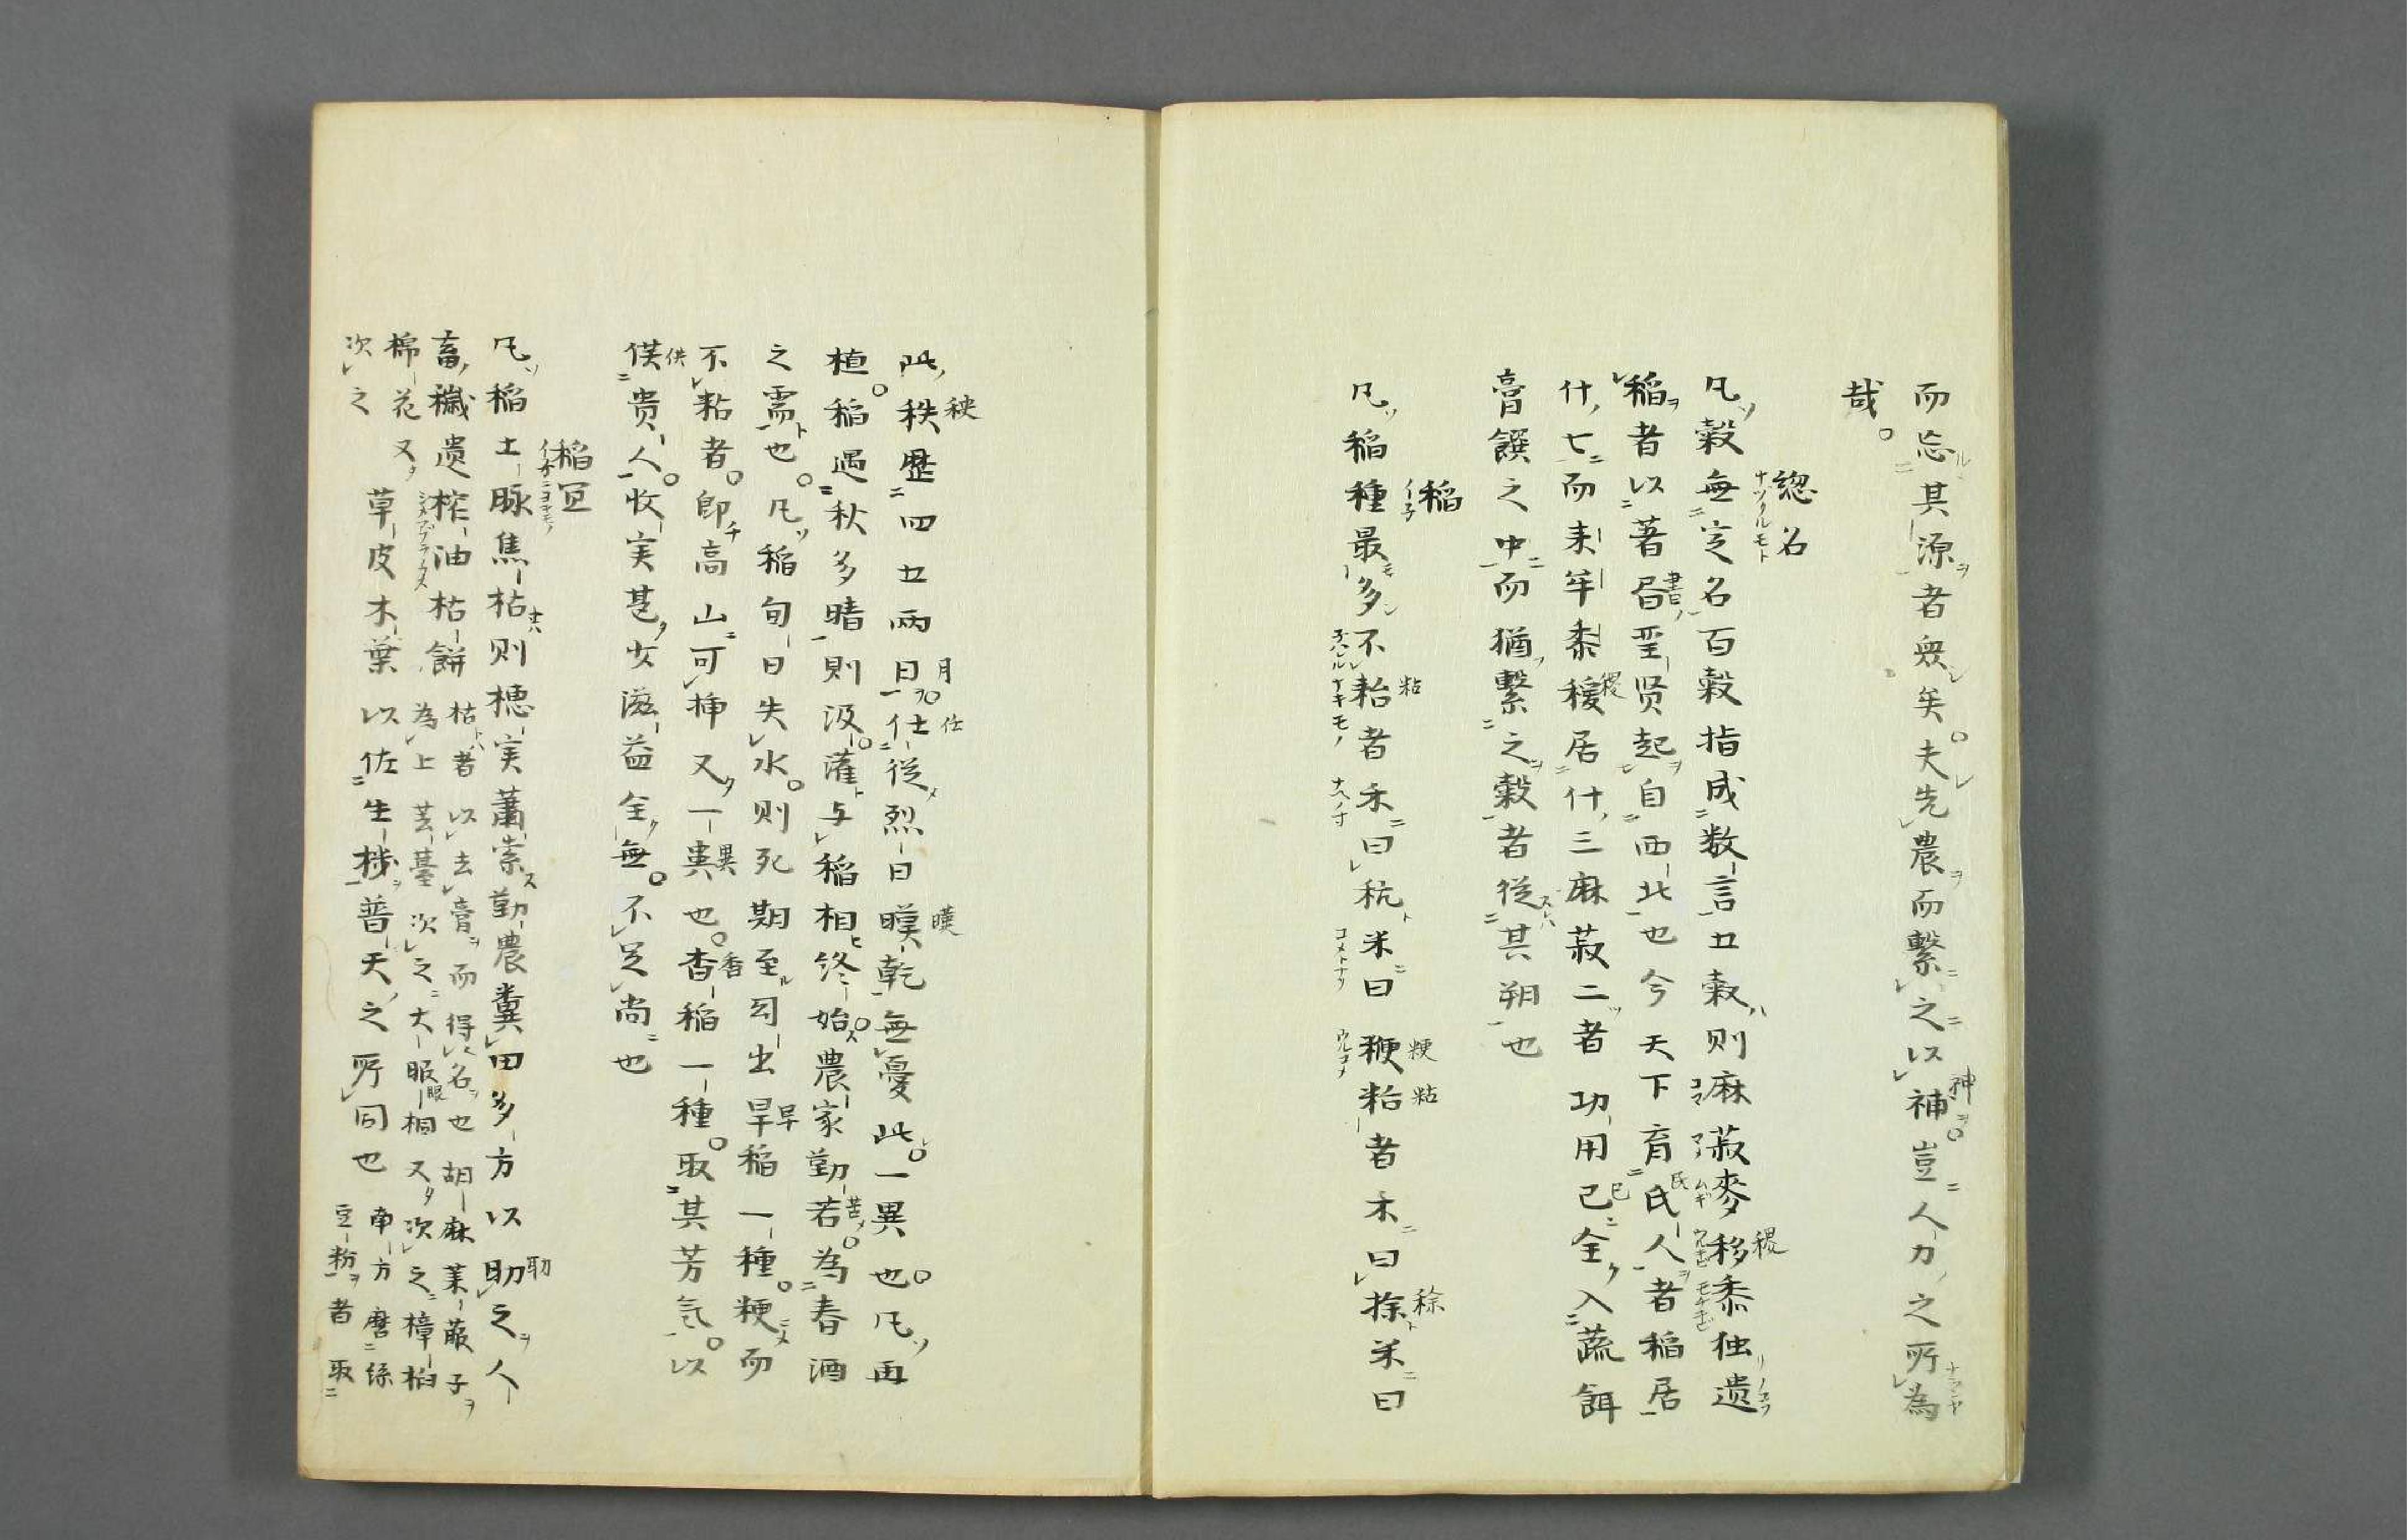 而忘其源者衆矣夫先農而繫之以補豈人力之所為
哉
総名
凡穀無定名百穀指成数言五穀則麻菽麥移黍独遺
稲者以著㫺聖贤起自西北也今天下育民人者稲居
什七而来牟黍稷居什三麻菽二者功用已全入蔬餌
膏饌之中而猶繫之穀者従其朔也
稲
凡稲種最多不粘者禾曰秔米曰粳粘者禾曰稌米曰
此秩歴四五両日任従烈日暵乾無憂此一異也凡再
植稲遇秋多晴則汲灌与稲相终始農家勤若為春酒
之需也凡稲旬日失水则死期至幻出旱稲一種粳而
不粘者即高山可挿又一異也香稲一種取其芳気以
供贵人收実甚少滋益全無不足尚也
稲宜
凡稲土脉焦枯则穂実蕭索勤農糞田多方以助之人
畜穢遗榨油枯餅枯者以去膏而得名也胡麻莱菔子
為上芸薹次之大眼桐又次之樟桕
棉花又
次之
草皮木葉以佐生機普天之所同也南方磨緑
豆粉者取